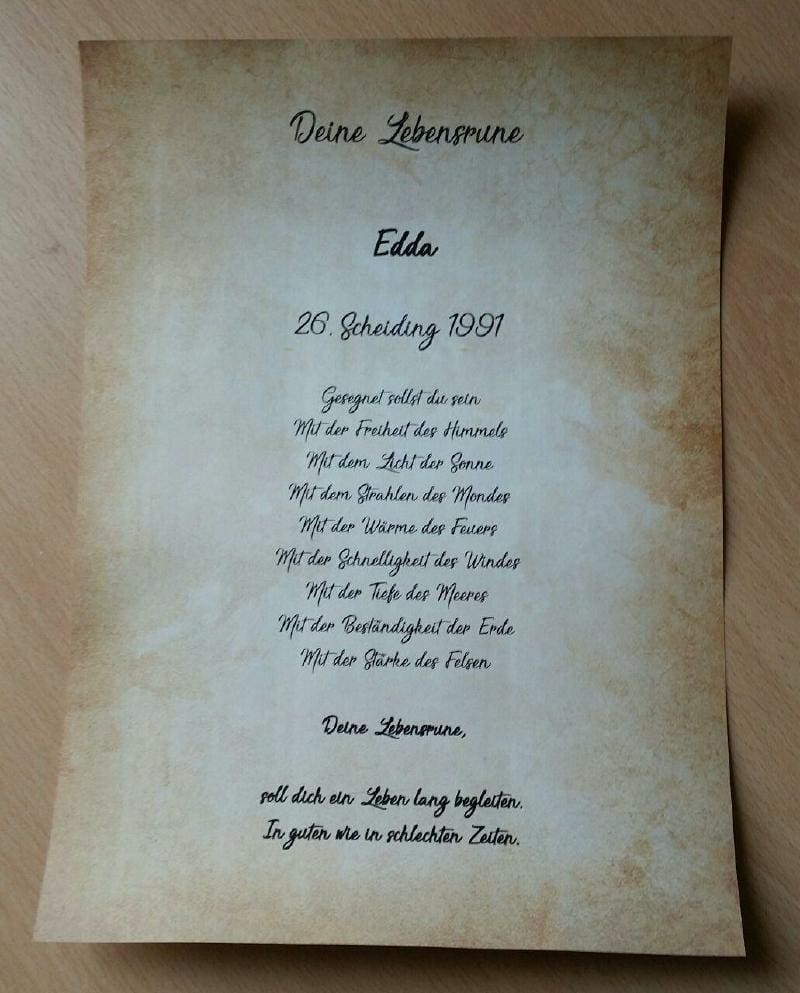 Deine Lebensrune
Edda
26. Scheiding 1991
Gesegnet sollst du sein
Mit der Freiheit des Himmels
Mit dem Licht der Sonne
Mit dem Strahlen des Mondes
Mit der Wärme des Feuers
Mit der Schnelligkeit des Windes
Mit der Tiefe des Meeres
Mit der Beständigkeit der Erde
Mit der Stärke des Felsen
Deine Lebensrune,
soll dich ein Leben lang begleiten.
In guten wie in schlechten Zeiten.